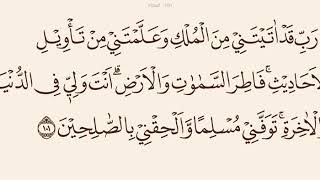 رَبِّ قَدْ اٰتَيْتَنِيْ مِنَ الْمُلْكِ وَعَلَّمْتَنِيْ مِنْ تَأْوِيْلِ
الْاَحَادِيْثِ ۚ فَاطِرَ السَّمٰوٰتِ وَالْاَرْضِ ۗ اَنْتَ وَلِيّٖ فِى الدُّنْيَا
وَالْاٰخِرَةِ ۚ تَوَفَّنِيْ مُسْلِمًا وَّاَلْحِقْنِيْ بِالصّٰلِحِيْنَ ١٠١